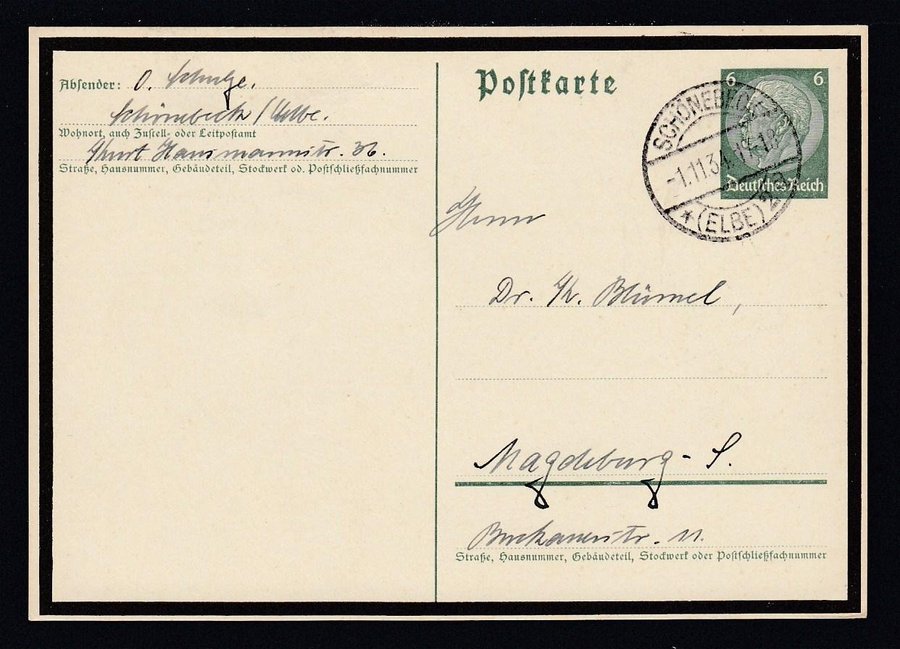 Absender: O. Schulze.
Schönebeck/Elbe.
Wohnort, auch Zustell- oder Leitpostamt
Kurt Hausmannstr. 36.
Straße, Hausnummer, Gebäudeteil, Stockwerk od. Postschließfachnummer
Postkarte
6 6
Deutsches Reich
SCHÖNEBECK
-1.11.34.
(ELBE) 2
Herrn
Dr. K. Blümel,
Magdeburg-S.
Buckauerstr. 11.
Straße, Hausnummer, Gebäudeteil, Stockwerk oder Postschließfachnummer